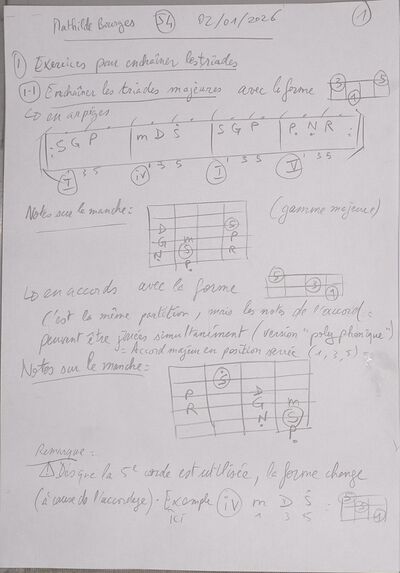 Mathilde Bourges S4 02/01/2026 1
1 Exercices pour enchaîner les triades
1-1 Enchaîner les triades majeures avec la forme 3 5 1
↳ en arpèges
S G P m D S S G P P N R
I 1 3 5 iv 1 3 5 I 1 3 5 V 1 3 5
Notes sur le manche : (gamme majeure)
D m S
G S P
N P R
↳ en accords avec la forme 5 3 1
C'est la même partition, mais les notes de l'accord
peuvent être jouées simultanément (version "polyphonique")
= Accord majeur en position serrée (1, 3, 5)
Notes sur le manche :
S
P D m
R G S
N P
Remarque :
⚠ Dès que la 5e corde est utilisée, la forme change
(à cause de l'accordage). Exemple iv m D S
ici 1 3 5 5 3 1